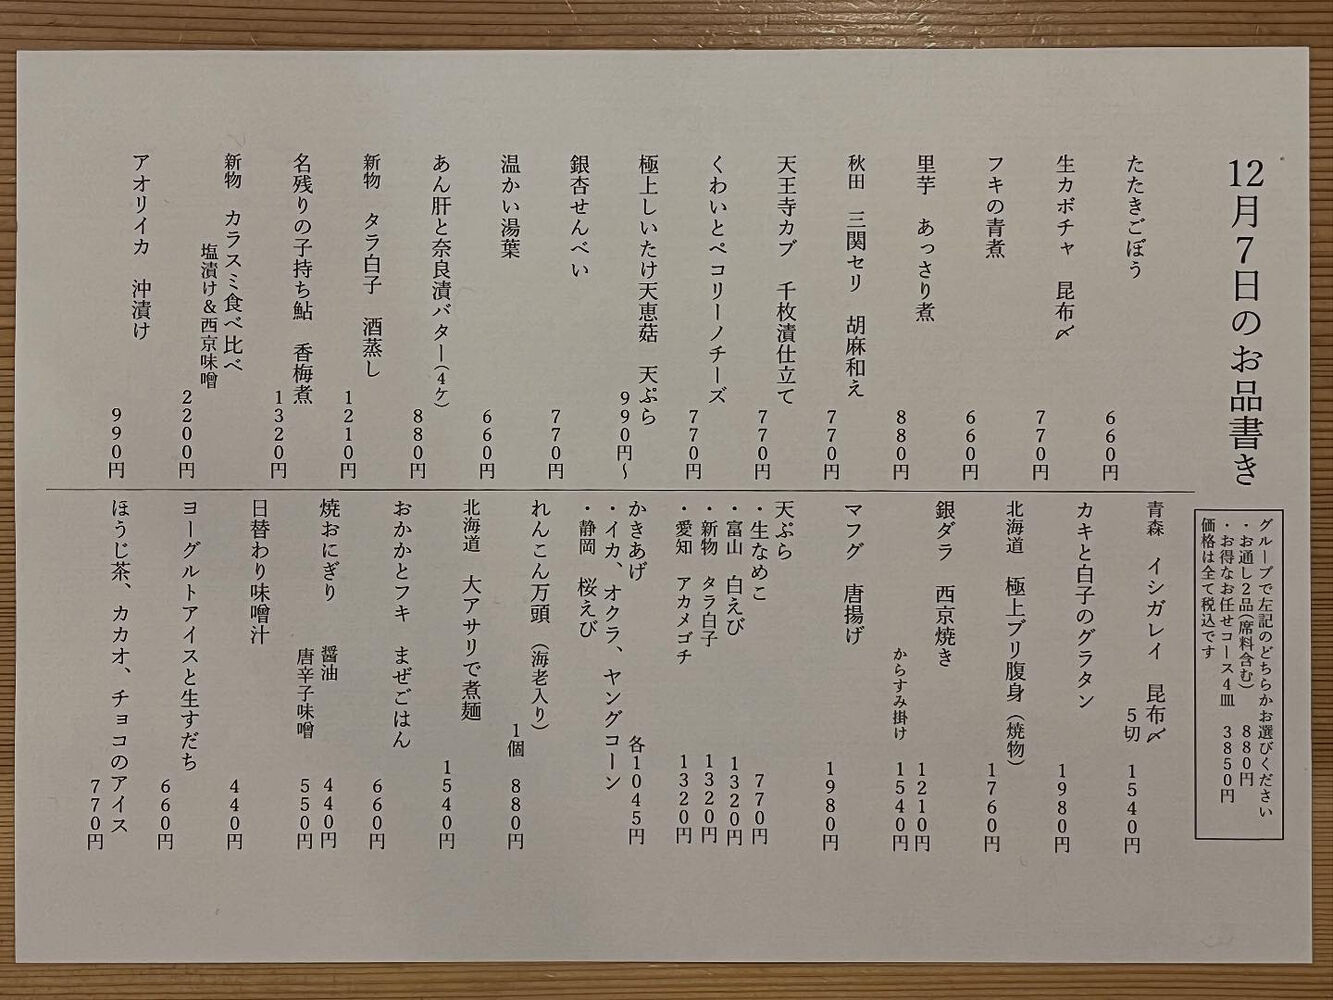 12月7日のお品書き
グループで左記のどちらかお選びください
・お通し2品(席料含む) 880円
・お得なお任せコース4皿 3850円
価格は全て税込です
たたきごぼう 660円
生カボチャ 昆布〆 770円
フキの青煮 660円
里芋 あっさり煮 880円
秋田 三関セリ 胡麻和え 770円
天王寺カブ 千枚漬仕立て 770円
くわいとペコリーノチーズ 770円
極上しいたけ天恵菇 天ぷら 990円～
銀杏せんべい 770円
温かい湯葉 660円
あん肝と奈良漬バター(4ケ) 880円
新物 タラ白子 酒蒸し 1210円
名残りの子持ち鮎 香梅煮 1320円
新物 カラスミ食べ比べ
塩漬け&西京味噌 2200円
アオリイカ 沖漬け 990円
青森 イシガレイ 昆布〆
5切 1540円
カキと白子のグラタン 1980円
北海道 極上ブリ腹身(焼物) 1760円
銀ダラ 西京焼き 1210円
からすみ掛け 1540円
マフグ 唐揚げ 1980円
天ぷら
・生なめこ 770円
・富山 白えび 1320円
・新物 タラ白子 1320円
・愛知 アカメゴチ 1320円
かきあげ 各1045円
・イカ、オクラ、ヤングコーン
・静岡 桜えび
れんこん万頭(海老入り)
1個 880円
北海道 大アサリで煮麺 1540円
おかかとフキ まぜごはん 660円
焼おにぎり 醤油 440円
唐辛子味噌 550円
日替わり味噌汁 440円
ヨーグルトアイスと生すだち 660円
ほうじ茶、カカオ、チョコのアイス 770円